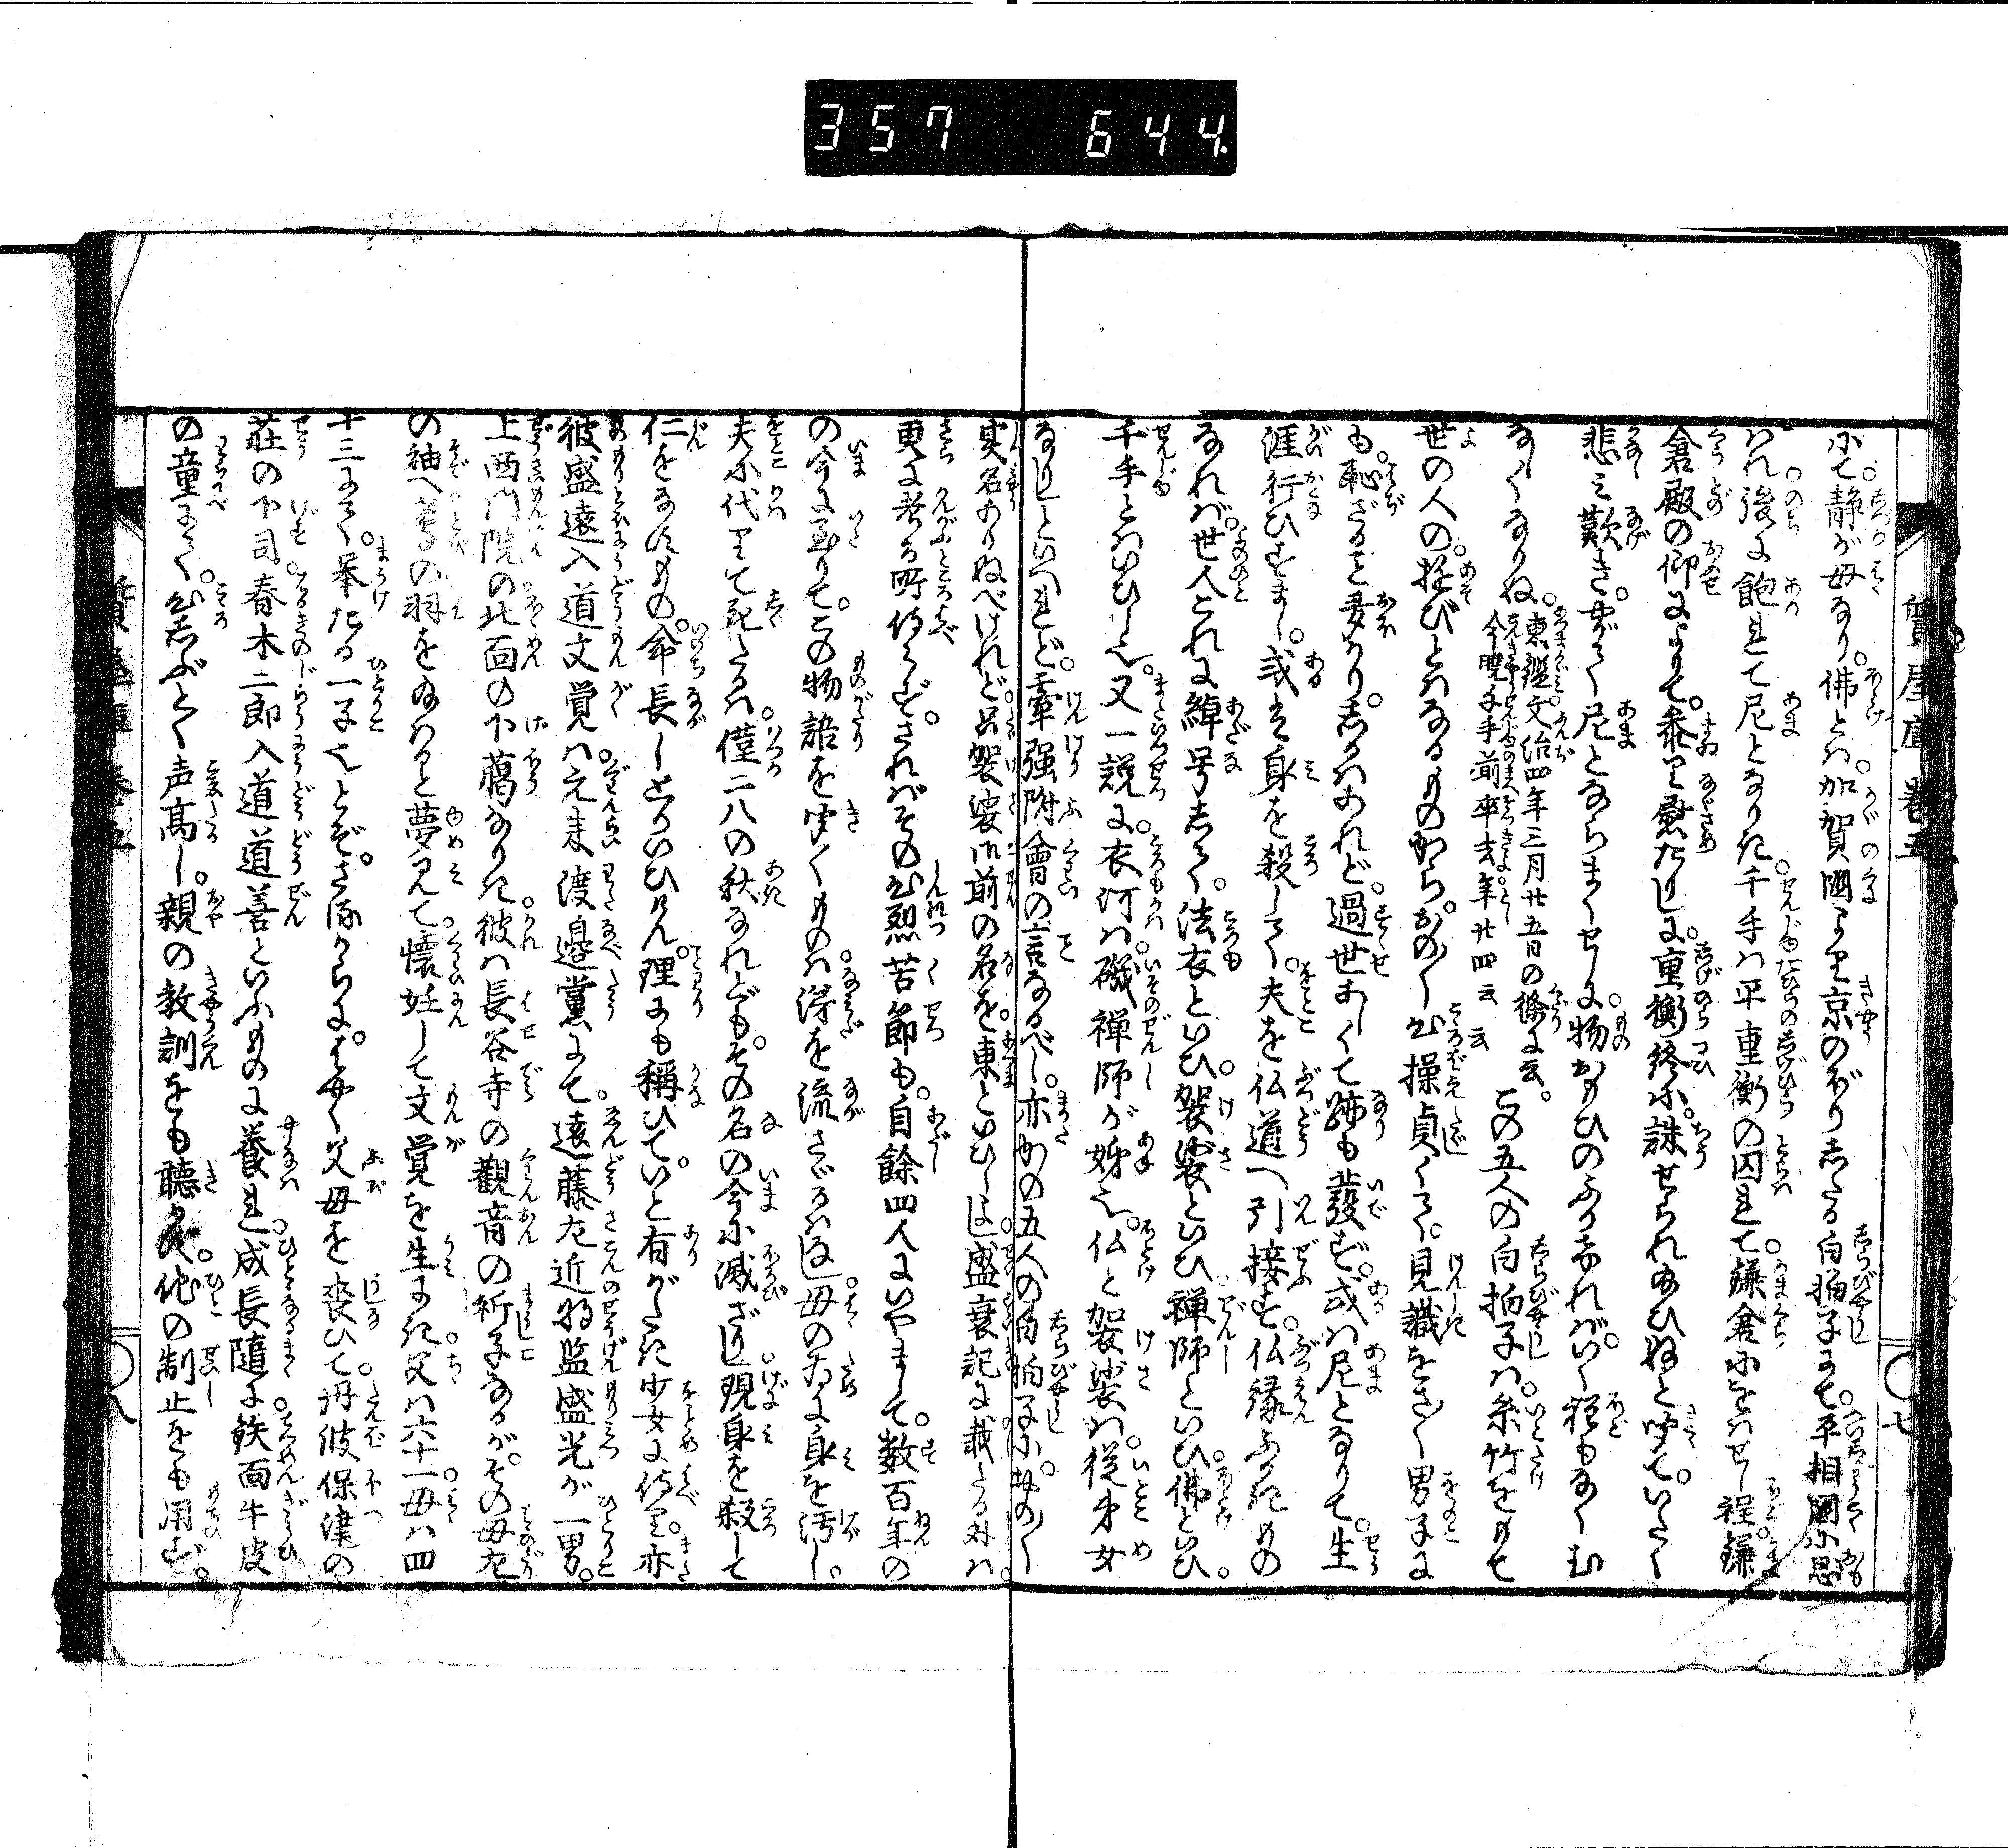 357 644.
質屋庫巻五
〇七
にて。静が母なり。佛とは。加賀國より京のぼりしたる白拍子にて。平相國に思
はれ。後に飽れて尼となりき。千手は平重衡の囚れて。鎌倉にをはせし程。鎌
倉殿の仰によりて。参り慰たりしに。重衡終に。誅せられ給ひぬと聞て。いたく
悲み歎き。やがて尼とならまくせしに。物おもひのふかければ。いく程もなくむ
なしくなりぬ。
東鑑。文治四年三月廿五日の條に云。
今暁千手前卒去年廿四云云
この五人の白拍子は。糸竹をもて
世の人の。遊びとはなるものから。おの〳〵心操貞くて。見識をさ〳〵男子に
も。恥ざること多かり。しかはあれど。過世あしくて跡も發ず。或は尼となりて。生
涯行ひすまし。或は身を殺して。夫を仏道へ引接す。仏縁ふかきもの
なれば。世人これに綽号して。法衣といひ。袈裟といひ。禅師といひ。佛といひ。
千手とはいひし也。又一説に。衣河は。磯禅師が姉也。仏と袈裟は。従弟女
なりしといへれど。牽强附會の言なるべし。亦かの五人の白拍子に。おの〳〵
実名ありぬべけれど。只袈裟御前の名を。東といひしよし。盛衰記に載たる外は。
更に考る所侍らず。さればその心烈苦節も。自餘四人にいやまして。数百年の
の今に至りて。この物語を聞くもの。涙を流さゞるはなし。母の為に身を汚し。
夫に代りて死たるは。僅二八の秋なれども。その名の今に滅ざりし。現身を殺して
仁をなすもの。命長しとかいひけん。理にも稱ひて。いと有がたき少女に侍り。亦
彼盛遠入道文覚は。元来渡邉黨にて。遠藤左近将監盛光が一男。
上西門院の北面の下﨟なりき。彼は長谷寺の觀音の祈子なるが。その母左
の袖へ鳶の羽を給はると夢見て。懐妊して文覚を生にき。父は六十一。母は四
十三にて。挙たる一子也とぞ。さるからに。はやく父母を喪ひて。丹波保津の
莊の下司。春木二郎入道道善といふものに養れ。成長隨に。鉄面牛皮
の童にて。心しぶとく声高し。親の教訓をも聴かず。他の制止をも用ず。
質屋庫巻五
〇八